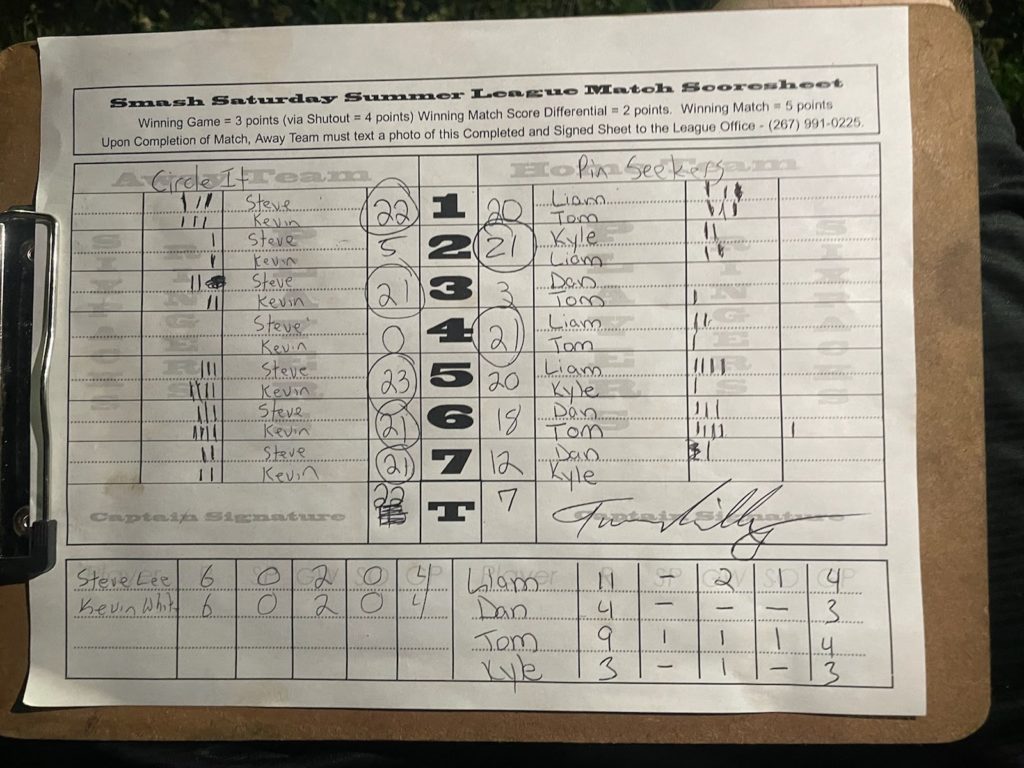 Smash Saturday Summer League Match Scoresheet
Winning Game = 3 points (via Shutout = 4 points) Winning Match Score Differential = 2 points. Winning Match = 5 points
Upon Completion of Match, Away Team must text a photo of this Completed and Signed Sheet to the League Office - (267) 991-0225.
Away Team Circle It Home Team Pin Seekers
Steve 22 1 20 Liam
Kevin Tom
Steve 5 2 21 Kyle
Kevin Liam
Steve 21 3 3 Dan
Kevin Tom
Steve 0 4 21 Liam
Kevin Tom
Steve 23 5 20 Liam
Kevin Kyle
Steve 21 6 18 Dan
Kevin Tom
Steve 21 7 12 Dan
Kevin Kyle
22 T 7
Captain Signature Captain Signature
Steve Lee 6 0 2 0 4 Liam 11 - 2 1 4
Kevin Whit 6 0 2 0 4 Dan 4 - - - 3
Tom 9 1 1 1 4
Kyle 3 - 1 - 3